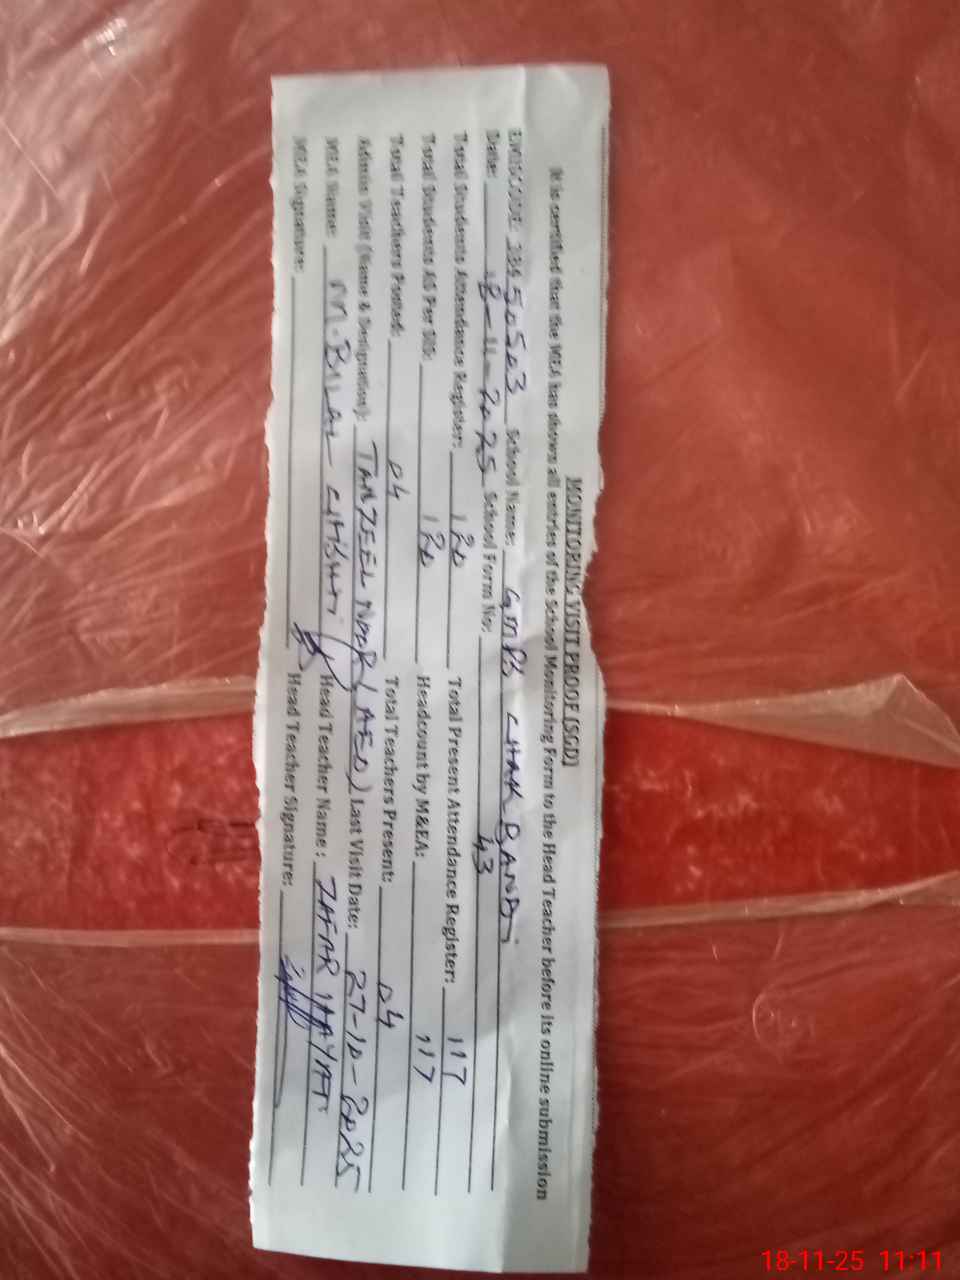 MONITORING VISIT PROOF (SGD)
It is certified that the MEA has shown all entries of the School Monitoring Form to the Head Teacher before its online submission
EMISCODE: 33450503 School Name: GMPS CHAK BANDI
Date: 18-11-2025 School Form No: 43
Total Students Attendance Register: 120 Total Present Attendance Register: 117
Total Students AS Per SIS: 120 Headcount by M&EA: 117
Total Teachers Posted: 04 Total Teachers Present: 04
Admin Visit (Name & Designation): TANZEEL NOOR (AEO) Last Visit Date: 27-10-2025
MEA Name: M. BILAL Head Teacher Name: ZAFAR HAYAT
MEA Signature: Head Teacher Signature:
18-11-25 11:11